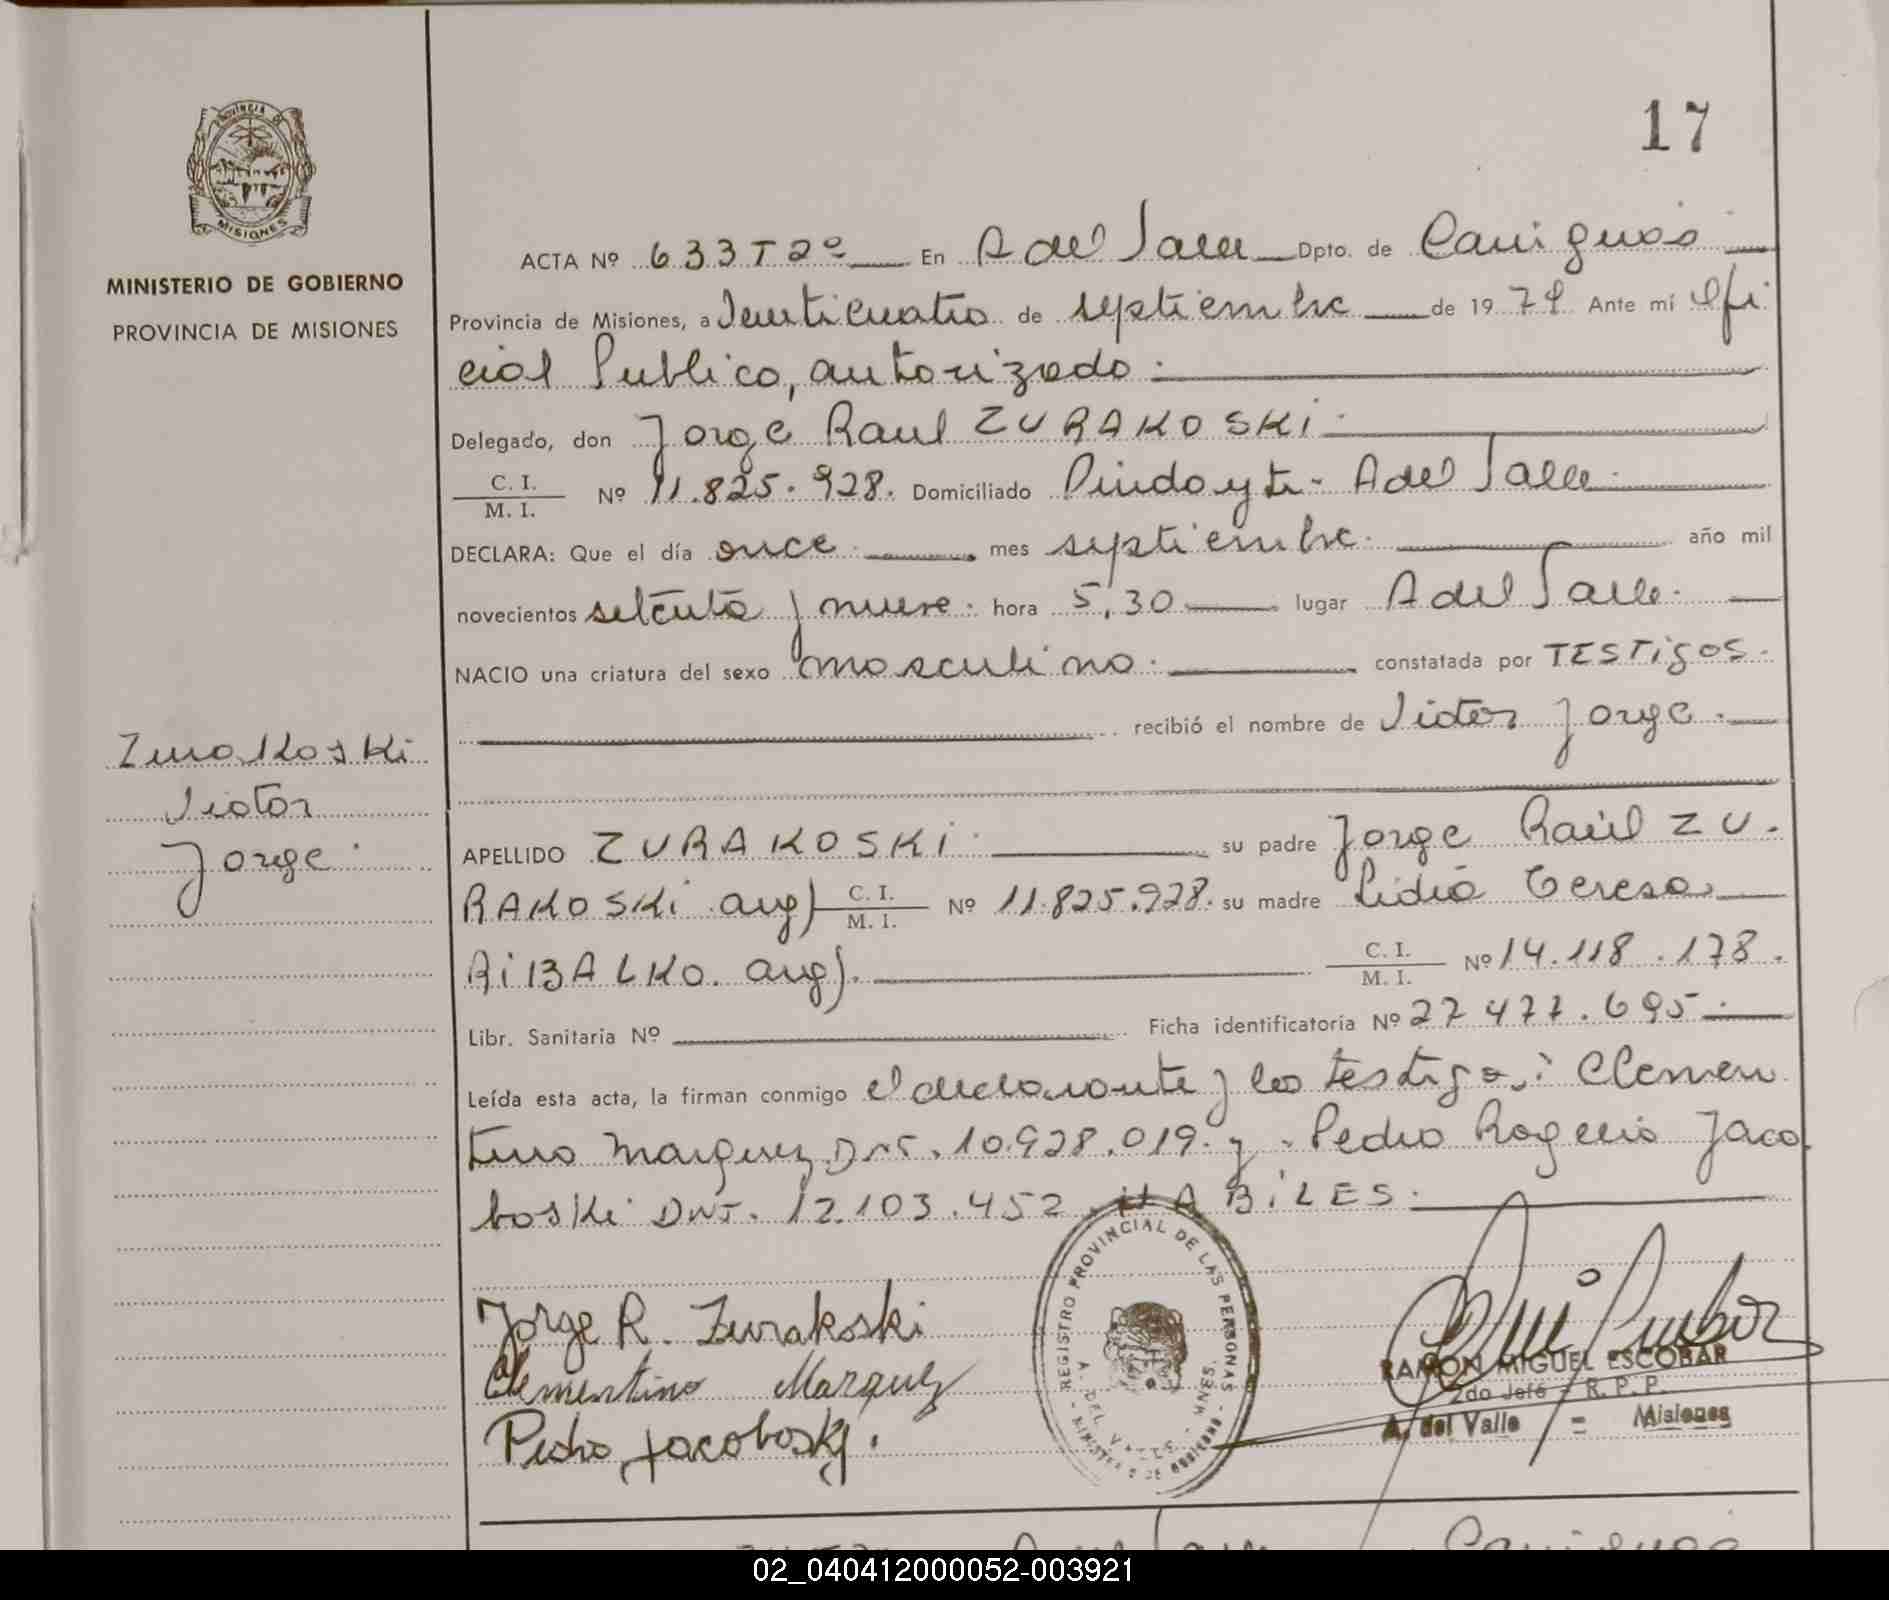 17
PROVINCIA DE
MISIONES
MINISTERIO DE GOBIERNO
PROVINCIA DE MISIONES
ACTA Nº 633 T 2º En A del Valle Dpto. de Cainguás
Provincia de Misiones, a Veinticuatro de septiembre de 1979. Ante mí Ofi
cial Publico, autorizado.
Delegado, don Jorge Raul ZURAKOSKi.
C. I.
M. I. Nº 11.825.928. Domiciliado Pindayti - A del Valle.
DECLARA: Que el día once. mes septiembre. año mil
novecientos setenta y nueve. hora 5,30 lugar A del Valle.
NACIO una criatura del sexo masculino. constatada por TESTigos.
recibió el nombre de Victor Jorge.
Zurakoski
Victor
Jorge.
APELLIDO ZURAKOSKi. su padre Jorge Raúl ZU-
RAKOSKi arg) C. I.
M. I. Nº 11.825.928. su madre Lidia Teresa
RiBALKO. arg). C. I.
M. I. Nº 14.118.178.
Libr. Sanitaria Nº Ficha identificatoria Nº 27 477.695.
Leída esta acta, la firman conmigo el declarante y los testigos: Clemen
tino Marquez DNI. 10.928.019. y Pedro Rogerio Jaco
boski DNI. 12.103.452. HABiLES.
Jorge R. Zurakoski
Clementino Marquez
Pedro Jacoboski.
REGISTRO PROVINCIAL DE LAS PERSONAS
A. DEL VALLE - MNES.
MINISTERIO DE GOBIERNO
RAMON MIGUEL ESCOBAR
2do Jefe - R. P. P.
A. del Valle = Misiones
02_040412000052-003921